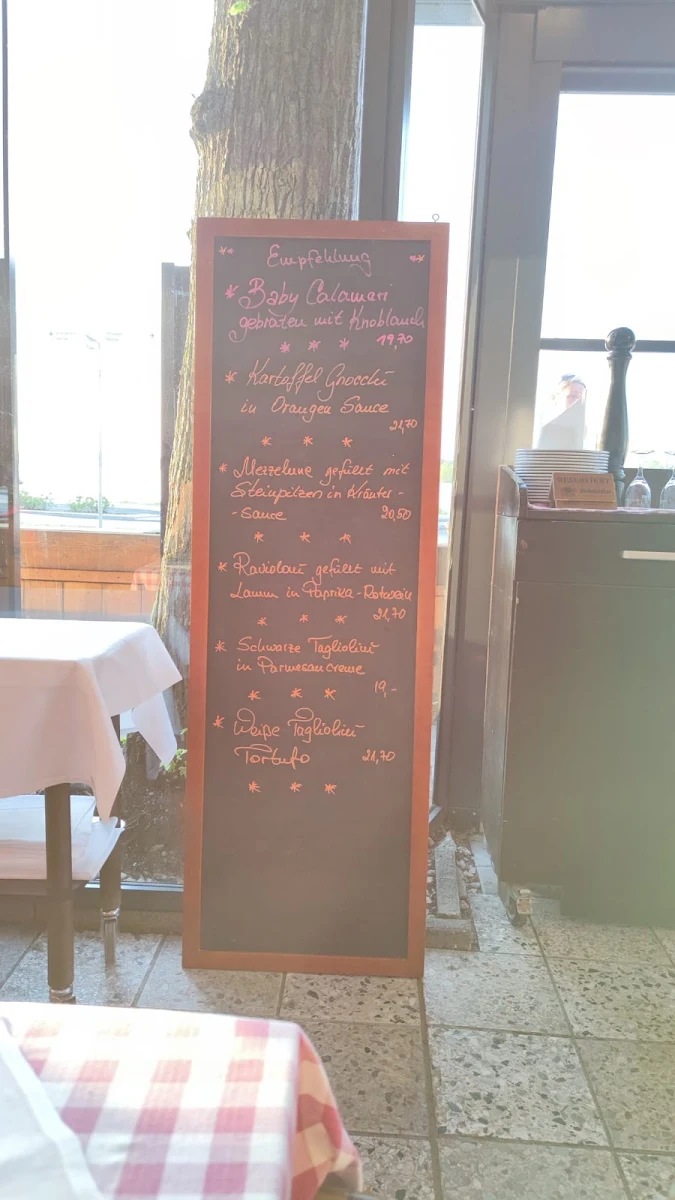 Empfehlung
* Baby Calamari
gebraten mit Knoblauch
19,70
* * *
* Kartoffel Gnocchi
in Orangen Sauce
21,70
* * *
* Mezzelune gefüllt mit
Steinpilzen in Kräuter-
-sauce 20,50
* * *
* Raviolaci gefüllt mit
Lamm in Paprika-Rotwein
21,70
* * *
* Schwarze Tagliolini
in Parmesancreme
19,-
* * *
* Weiße Tagliolini
Tartufo 21,70
* * *